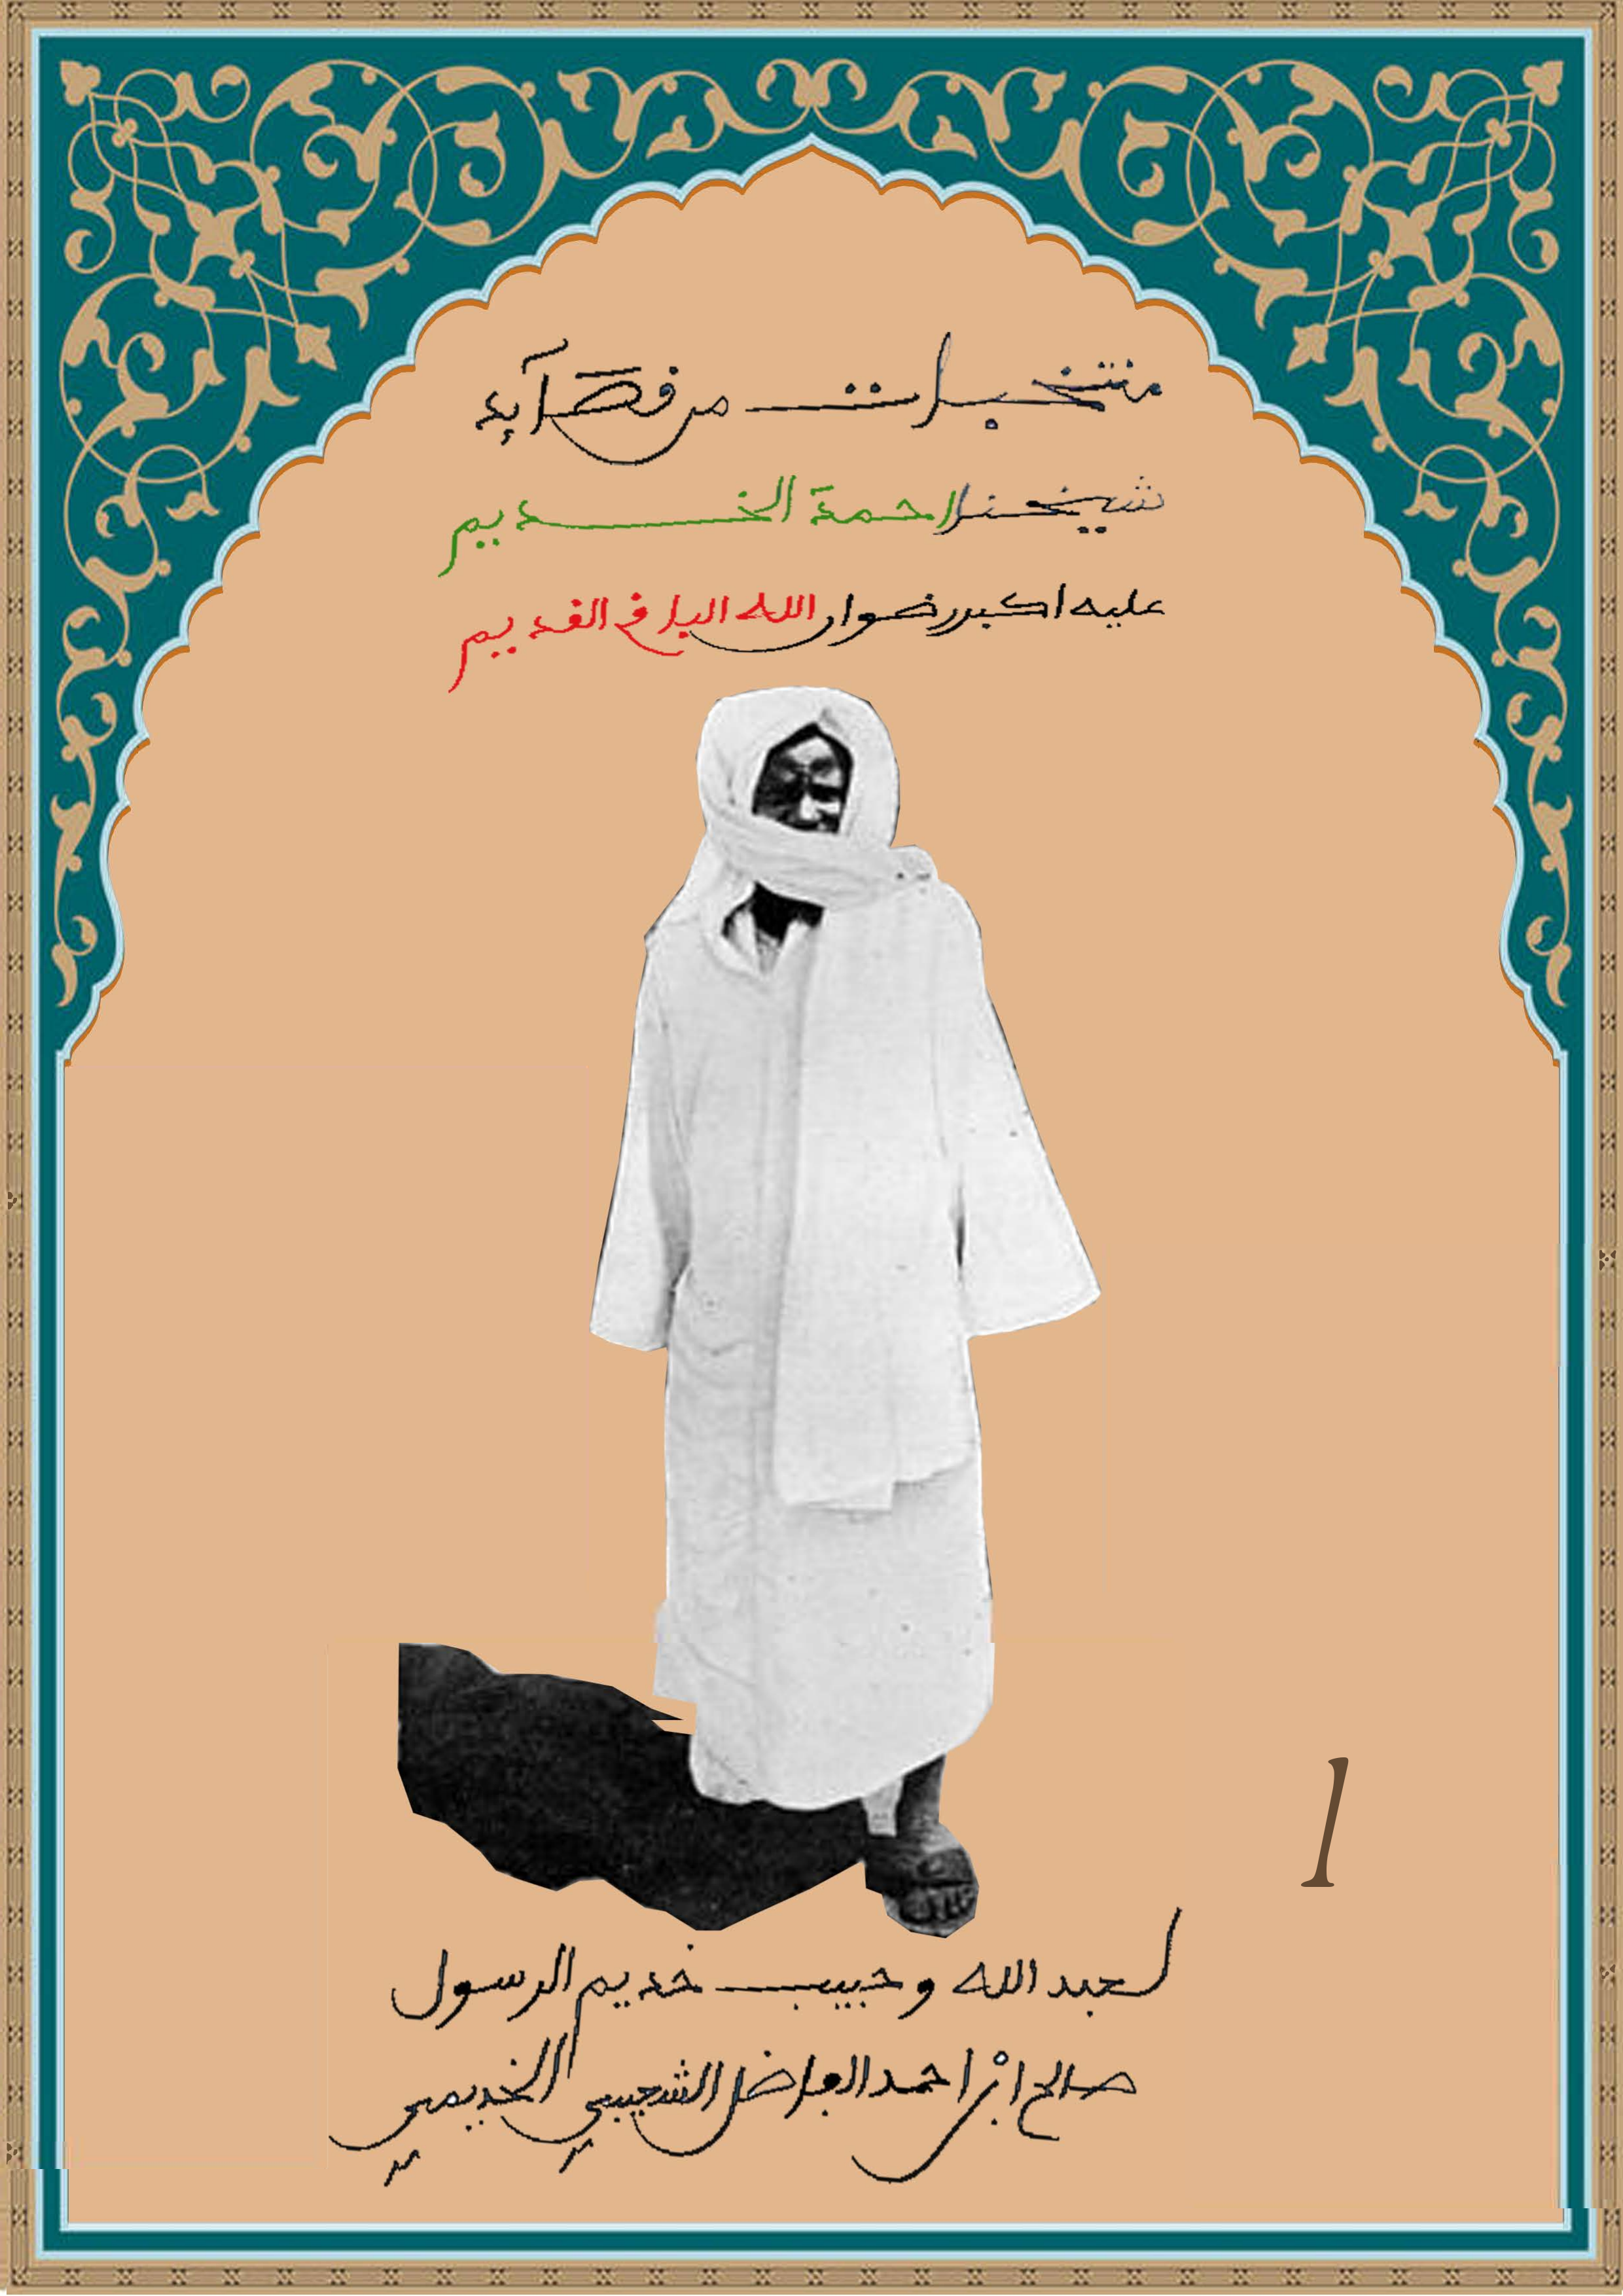 منتخبات من قصآئد
شيخنا احمد الخديم
عليه اكبر رضوان الله الباقي القديم
ا
لعبد الله وحبيب خديم الرسول
صالح ابن احمد الفاضل الشعيبي الخديمي